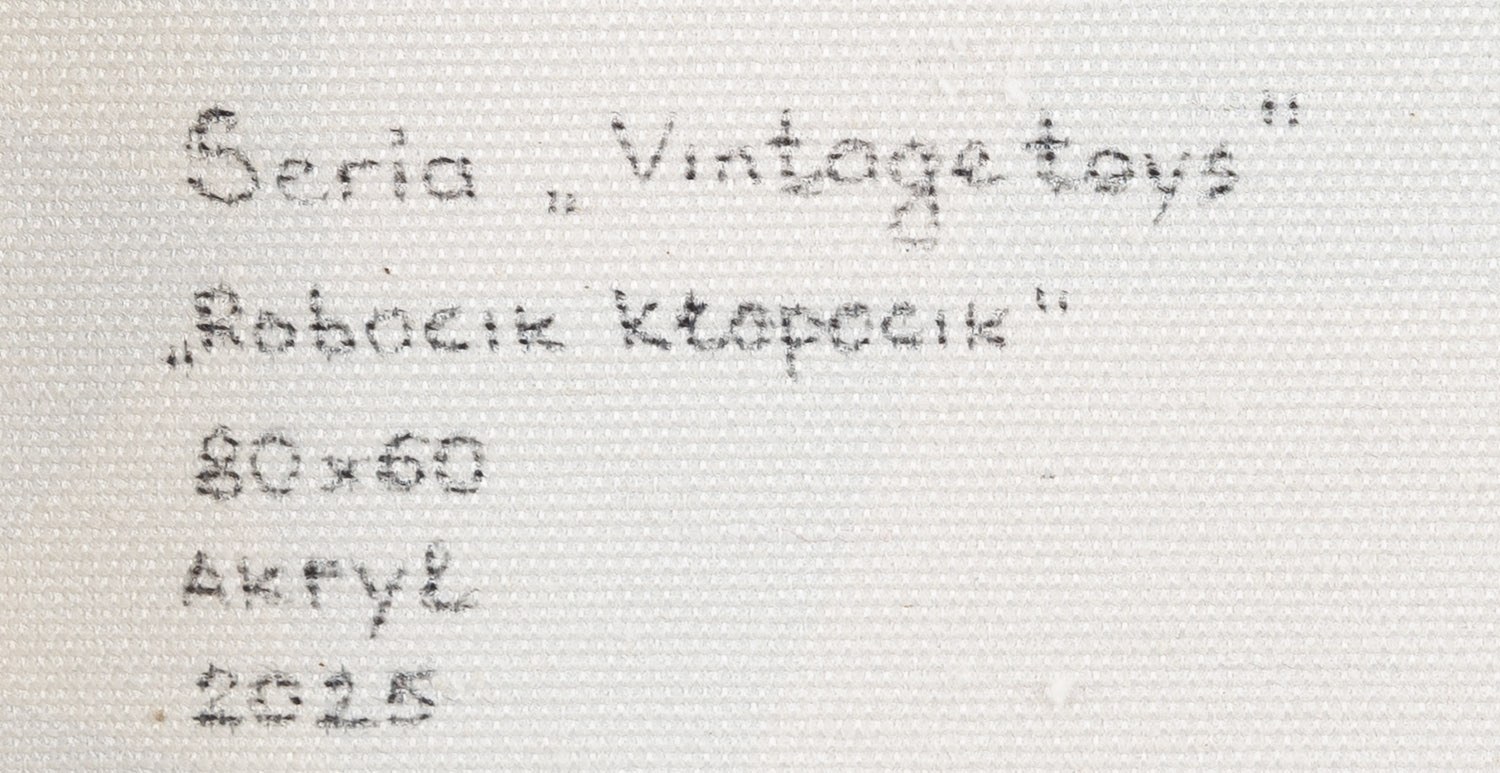 Seria „Vintage toys"
„Robocik Kłopocik"
80x60
Akryl
2025